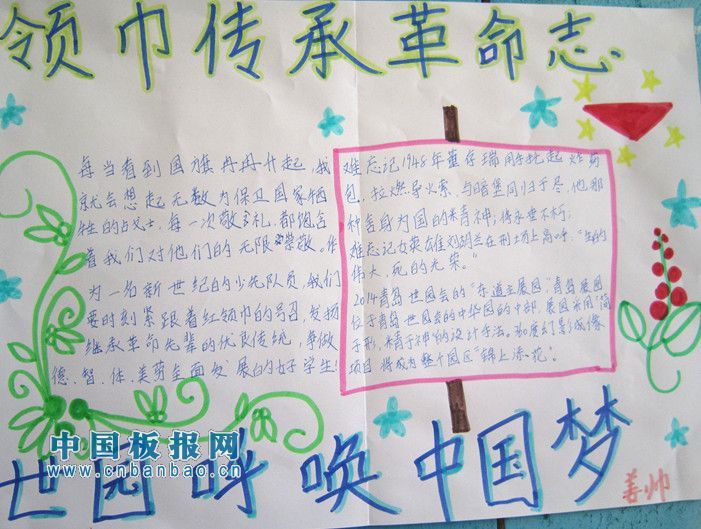 领巾传承革命志
每当看到国旗冉冉升起,我
就会想起无数为保卫国家牺
牲的战士,每一次敬礼,都饱含
着我们对他们的无限崇敬。作
为一名新世纪的少先队员,我们
要时刻紧跟着红领巾的号召,发扬
继承革命先辈的优良传统,争做
德、智、体、美劳全面发展的好学生!
难忘记1948年董存瑞用手托起炸药
包,拉燃导火索,与暗堡同归于尽,他那
种舍身为国的精神,传永垂不朽;
难忘记女英雄刘胡兰在刑场上高呼,“生的
伟大,死的光荣。”
2014青岛世园会的“东道主展园”青岛展园
位于青岛世园会的中华园的中部,展园采用“简
于形,精于神”的设计手法。
项目将成为整个园区“锦上添花”。
世园呼唤中国梦
姜帅
中国板报网
www.cnbanbao.cn